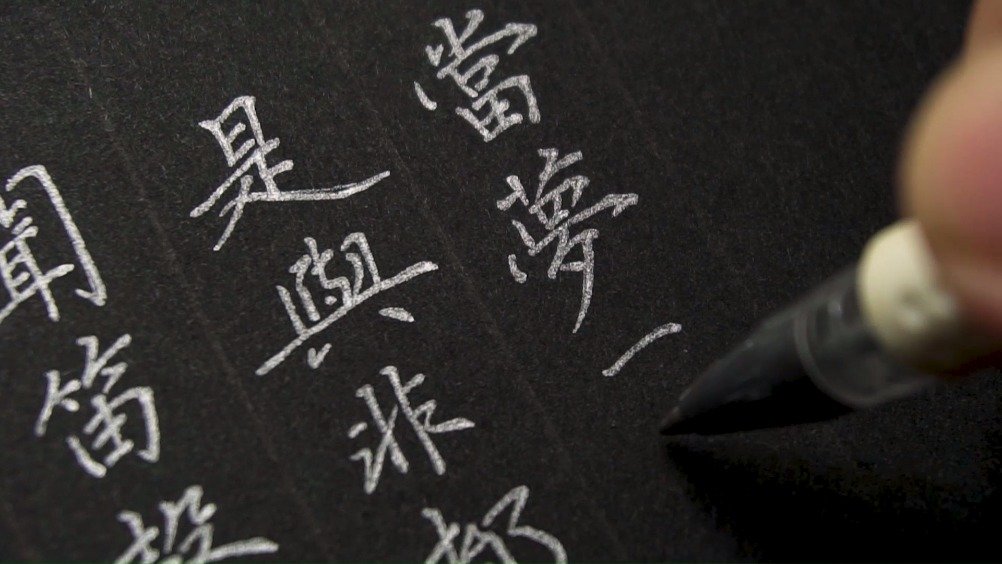 當夢一
是與非都
聞笛聲